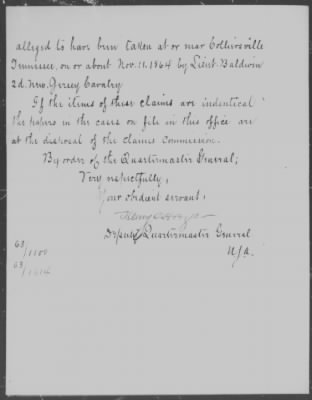 alleged to have been taken at or near Colliersville
Tennessee, on or about Nov. 11. 1864 by Lieut. Baldwin
2d. New Jersey Cavalry
If the items of these claims are indentical
the papers in the cases on file in this office are
at the disposal of the claims Commission.
By order of the Quartermaster General;
Very respectfully,
Your obedient servant,
Deputy Quartermaster General
U.S.A.
68/1100